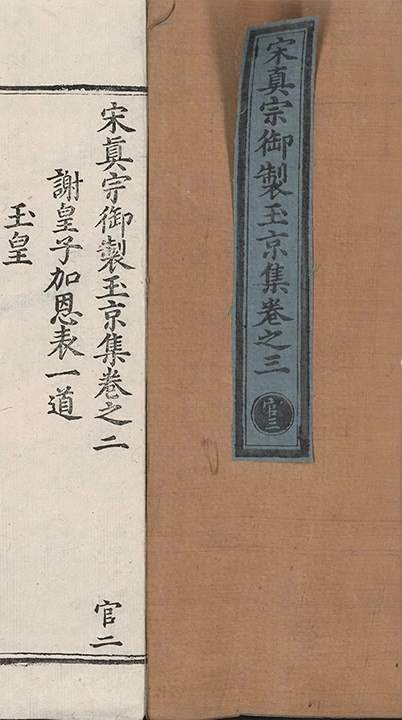 宋真宗御製玉京集卷之三
官三
宋真宗御製玉京集卷之二
官二
謝皇子加恩表一道
玉皇